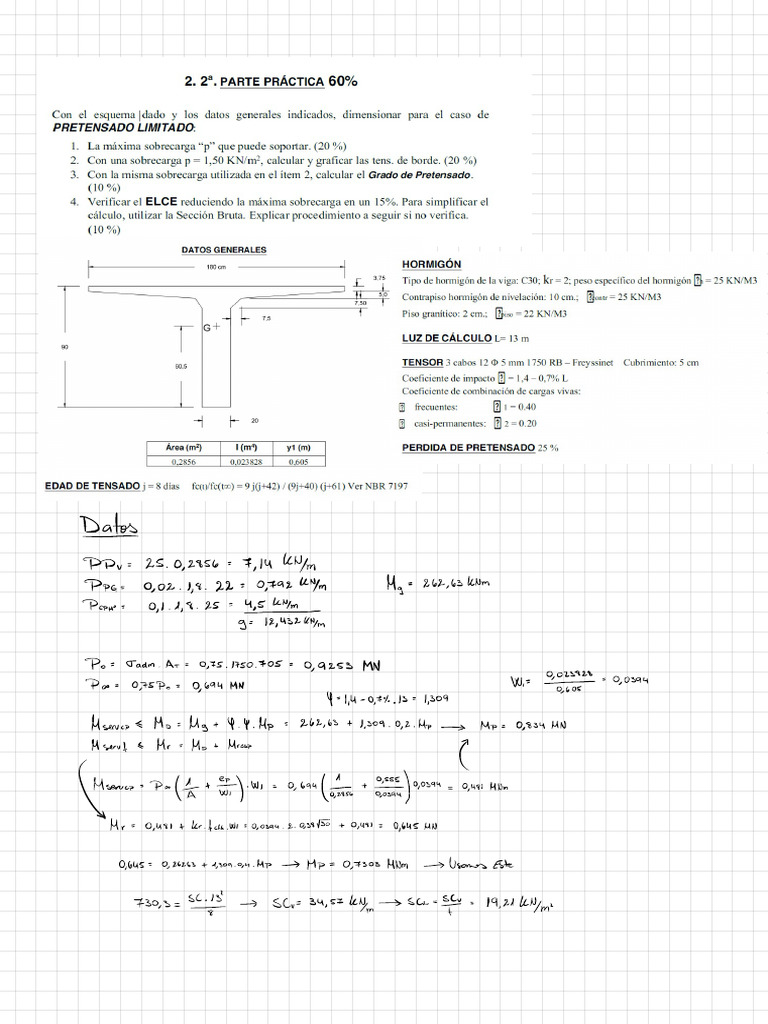 2. 2ª. PARTE PRÁCTICA 60%
Con el esquema dado y los datos generales indicados, dimensionar para el caso de
PRETENSADO LIMITADO:
1. La máxima sobrecarga “p” que puede soportar. (20 %)
2. Con una sobrecarga p = 1,50 KN/m², calcular y graficar las tens. de borde. (20 %)
3. Con la misma sobrecarga utilizada en el ítem 2, calcular el Grado de Pretensado.
(10 %)
4. Verificar el ELCE reduciendo la máxima sobrecarga en un 15%. Para simplificar el
cálculo, utilizar la Sección Bruta. Explicar procedimiento a seguir si no verifica.
(10 %)
DATOS GENERALES
180 cm
3,75
5,0
7,50
7,5
G
90
60.5
20
Área (m²) I (m⁴) y1 (m)
0,2856 0,023828 0,605
HORMIGÓN
Tipo de hormigón de la viga: C30; kr = 2; peso específico del hormigón = 25 KN/M3
Contrapiso hormigón de nivelación: 10 cm.; contr = 25 KN/M3
Piso granítico: 2 cm.; piso = 22 KN/M3
LUZ DE CÁLCULO L= 13 m
TENSOR 3 cabos 12 Φ 5 mm 1750 RB – Freyssinet Cubrimiento: 5 cm
Coeficiente de impacto = 1,4 – 0,7% L
Coeficiente de combinación de cargas vivas:
frecuentes: 1 = 0.40
casi-permanentes: 2 = 0.20
PERDIDA DE PRETENSADO 25 %
EDAD DE TENSADO j = 8 dias fc(t)/fc(t∞) = 9 j(j+42) / (9j+40) (j+61) Ver NBR 7197
Datos
PPv = 25.0,2856 = 7,14 KN/m
PPG = 0,02.1,8.22 = 0,792 KN/m
PCPHº = 0,1.1,8.25 = 4,5 KN/m
g = 12,432 KN/m
Mg = 262,63 KNm
P0 = σadm.AT = 0,75.1750.705 = 0,9253 MN
P∞ = 0,75P0 = 0,694 MN
φ = 1,4 - 0,7%.13 = 1,309
W1 = 0,023828 / 0,605 = 0,0394
Mservcp ≤ M0 = Mg + φ.ψ.Mp = 262,63 + 1,309.0,2.Mp → Mp = 0,834 MN
Mservf ≤ Mr = M0 + Mrcap
Mservcp = P∞ (1/A + ep/W1).W1 = 0,694 (1/0,2856 + 0,555/0,0394) 0,0394 = 0,481 MNm
Mr = 0,481 + kr.fctk.W1 = 0,0394.2.0,39√30 + 0,481 = 0,645 MN
0,645 = 0,26263 + 1,309.0,4.Mp → Mp = 0,7303 MNm → Usamos Este
730,3 = SC.13² / 8 → SCv = 34,57 KN/m → SCL = SCv / t = 19,21 KN/m²